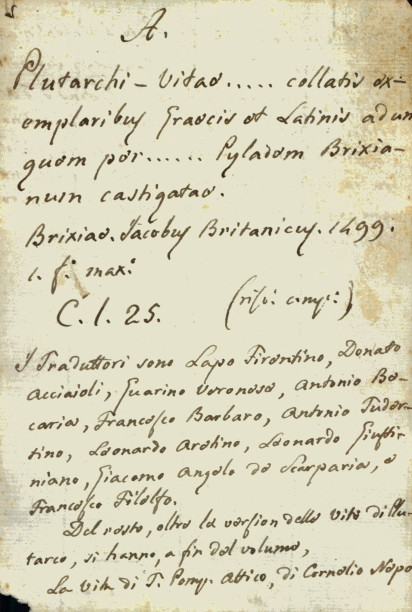 A.
Plutarchi - Vitae ..... collatis ex-
emplaribus Graecis et Latinis ad un
guem per ...... Pyladem Brixia-
num castigatae.
Brixiae. Jacobus Britanicus. 1499.
1. f.º max.º
C. l. 25. (risp: comp:)
I Traduttori sono Lapo Fiorentino, Donato
Acciaioli, Guarino Veronese, Antonio Be-
caria, Francesco Barbaro, Antonio Tuder-
tino, Leonardo Aretino, Leonardo Giusti-
niano, Giacomo Angelo de Scarparia, e
Francesco Filelfo.
Del resto, oltre la version delle Vite di Plu-
tarco, si hanno, a fin del volume,
La Vita di T. Pomp. Attico, di Cornelio Nepo